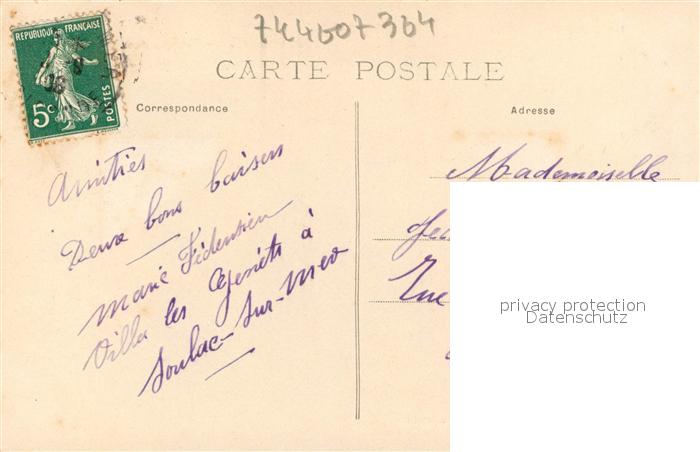 744607364
REPUBLIQUE FRANÇAISE
5c
POSTES
CARTE POSTALE
Correspondance
Adresse
Amitiés
Deux bons baisers
Marie
Villa les Genêts à
Soulac-sur-Mer
Mademoiselle
Rue
privacy protection
Datenschutz